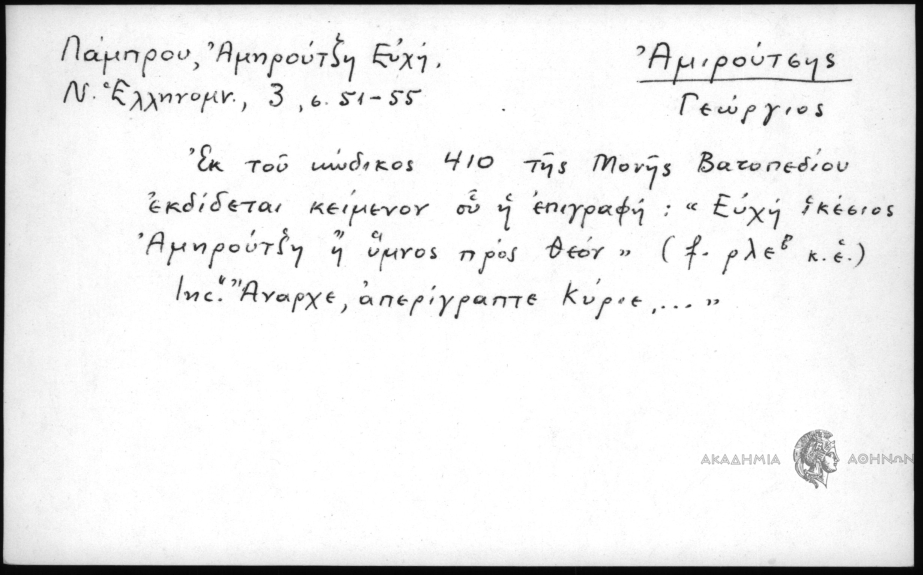 Λάμπρου, Ἀμηρούτζη Εὐχή.
Ν. Ἑλληνομν., 3, σ. 51-55
Ἀμιρούτσης
Γεώργιος
Ἐκ τοῦ κώδικος 410 τῆς Μονῆς Βατοπεδίου
ἐκδίδεται κείμενον οὗ ἡ ἐπιγραφή: "Εὐχή ἱκέσιος
Ἀμηρούτζη ἢ ὕμνος πρὸς θεόν" (f. ρλεβ κ.ἑ.)
Inc. "Ἄναρχε, ἀπερίγραπτε Κύριε,..."
ΑΚΑΔΗΜΙΑ ΑΘΗΝΩΝ